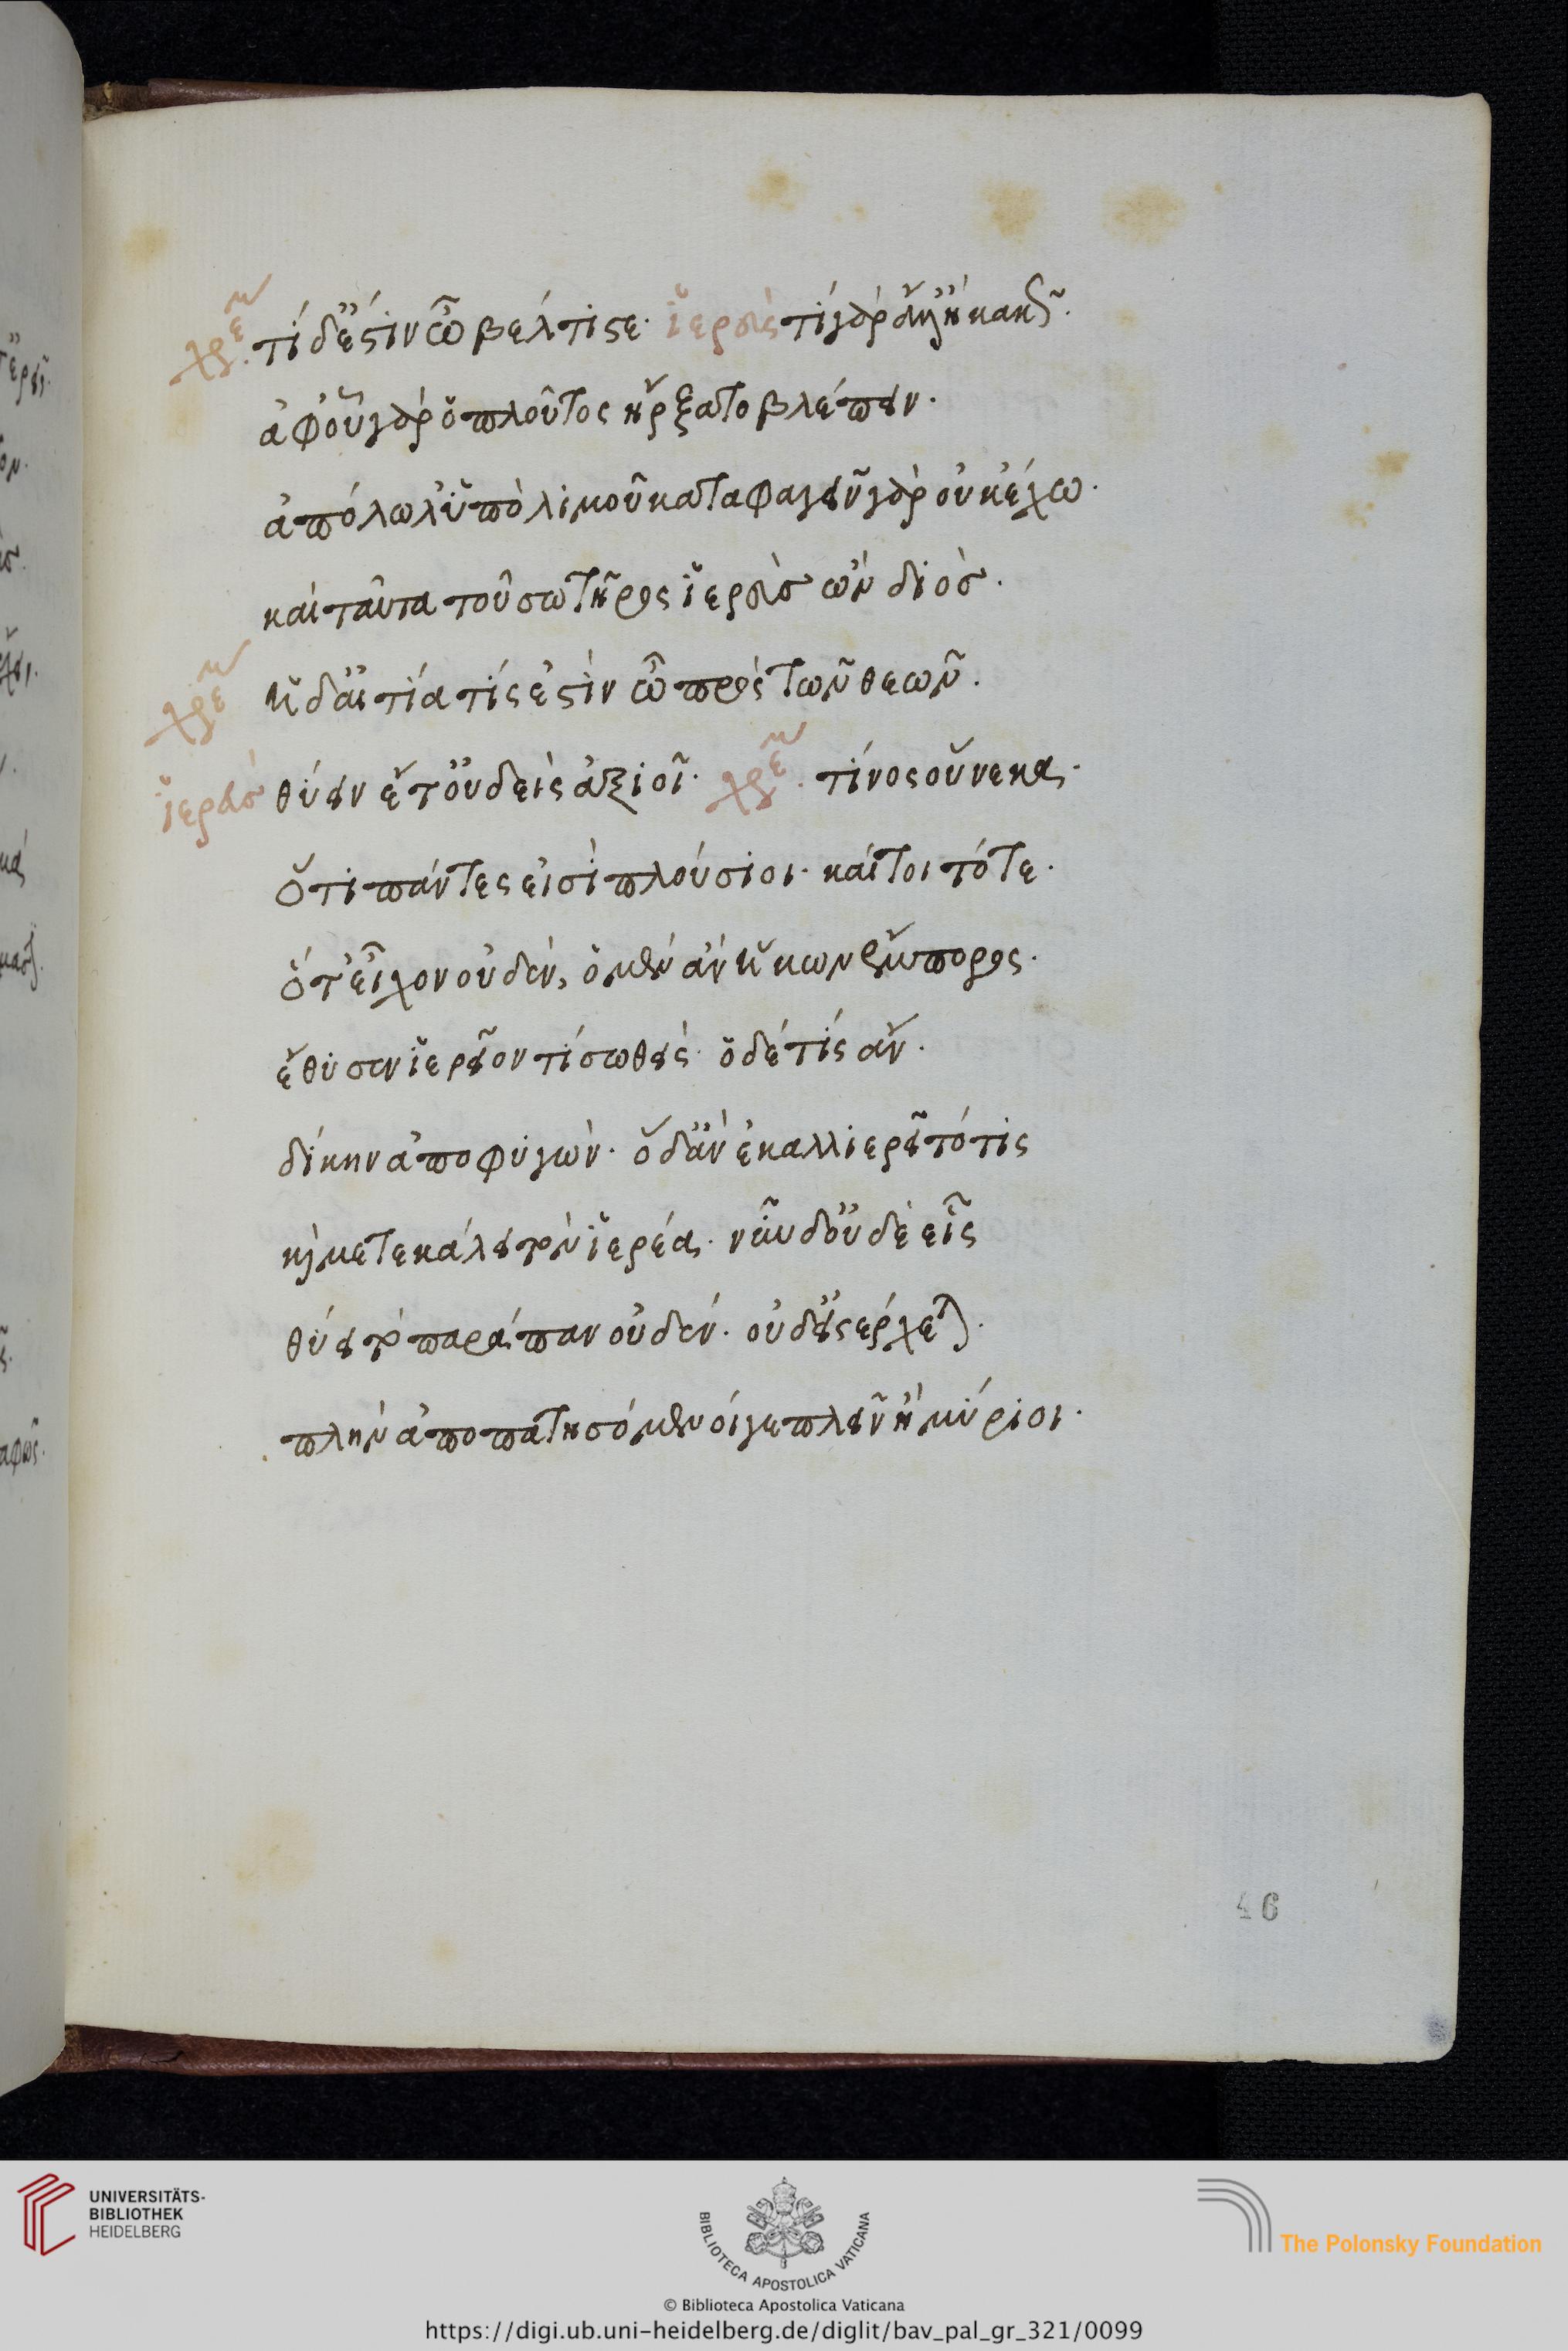 χρε τί δ' ἔστιν ὦ βέλτιστε· ἱερεὺς τί γὰρ ἀλλ' ἢ κακῶς.
ἀφ' οὗ γὰρ ὁ πλοῦτος ἤρξατο βλέπειν.
ἀπόλωλ' ὑπὸ λιμοῦ καταφαγεῖν γὰρ οὐκ ἔχω.
καὶ ταῦτα τοῦ σωτῆρος ἱερεὺς ὢν διός.
χρε ἡ δ' αἰτία τίς ἐστὶν ὦ πρὸς τῶν θεῶν.
ἱερεὺς θύειν ἔτ' οὐδεὶς ἀξιοῖ· χρε. τίνος οὕνεκα·
ὅτι πάντες εἰσὶ πλούσιοι· καίτοι τότε·
ὅτ' εἶχον οὐδέν, ὁ μὲν ἂν ἥκων ἔμπορος·
ἔθυσεν ἱερεῖόν τι σωθείς· ὁ δέ τις ἂν.
δίκην ἀποφυγών· ὁ δ' ἂν ἐκαλλιερεῖτό τις
καὶ μετεκάλει τὸν ἱερέα· νῦν δ' οὐδὲ εἷς
θύει τὸ παράπαν οὐδέν· οὐδ' εἰσέρχεται.
πλὴν ἀποπατησόμενοί γε πλεῖν ἢ μύριοι.
46
UNIVERSITÄTS-
BIBLIOTHEK
HEIDELBERG
BIBLIOTECA APOSTOLICA VATICANA
The Polonsky Foundation
© Biblioteca Apostolica Vaticana
https://digi.ub.uni-heidelberg.de/diglit/bav_pal_gr_321/0099